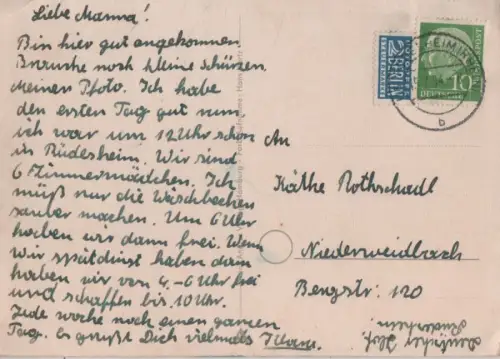 Liebe Mamma!
Bin hier gut angekommen.
Brauche noch kleine schürzen
Meinen Photo. Ich habe
den ersten Tag gut rum,
ich war um 12 Uhr schon
in Rüdesheim. Wir sind
6 Zimmermädchen. Ich
müß nur die Waschbecken
sauber machen. Um 6 Uhr
haben wir dann frei. Wenn
wir spätdinst haben dann
haben wir von 4.-6 Uhr frei
und schaffen bis 10 Uhr.
Jede woche noch einen ganzen
Tag. Es grüßt Dich vielmals
NOTOPFER
2 BERLIN
STEUERMARKE
DEUTSCHE BUNDESPOST
10
b
An
Käthe Rothschadl
Niederweidbach
Bergstr. 120
Rüdesheim